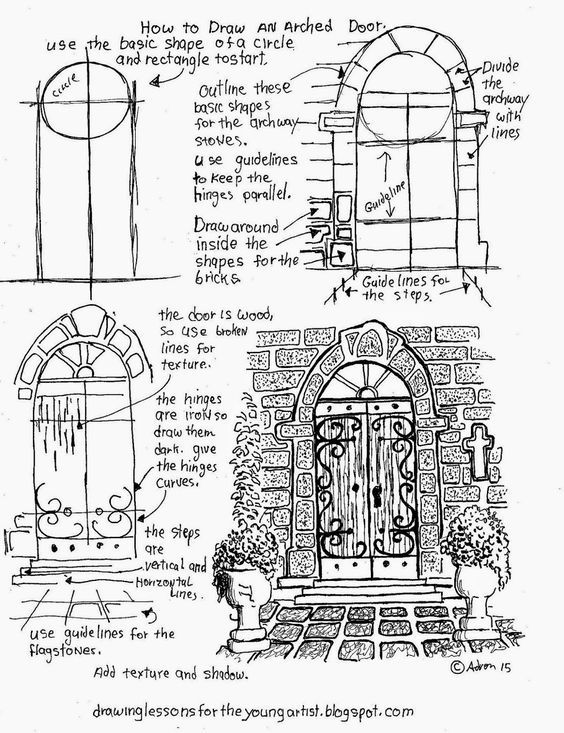 How to Draw An Arched Door.
use the basic shape of a circle
and rectangle to start.
circle
Outline these
basic shapes
for the archway
stones.
use guidelines
to keep the
hinges parallel.
Draw around
inside the
shapes for the
bricks.
Divide
the
archway
with
lines
Guideline
Guide lines for
the steps.
the door is wood,
so use broken
lines for
texture.
the hinges
are iron so
draw them
dark. give
the hinges
curves.
the steps
are
vertical and
Horizontal
lines.
use guidelines for the
flagstones.
Add texture and shadow.
© Adron 15
drawinglessonsfortheyoungartist.blogspot.com